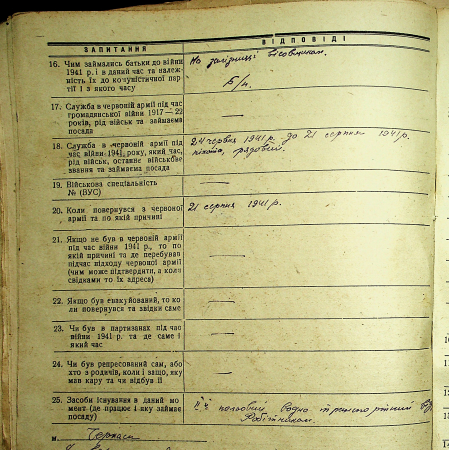 ЗАПИТАННЯ
ВІДПОВІДІ
16. Чим займались батьки до війни
1941 р. і в даний час та належ-
ність їх до комуністичної пар-
тії і з якого часу
На залізниці
Б/п.
17. Служба в червоній армії під час
громадянської війни 1917—22
років, рід військ та займаєма
посада
—
18. Служба в червоній армії під
час війни 1941 року, який час,
рід військ, останнє військове
звання та займаєма посада
24 червня 1941 р. до 21 серпня 1941 р.
піхота, рядовий.
19. Військова спеціальність
№ (ВУС)
—
20. Коли повернувся з червоної
армії та по якій причині
21 серпня 1941 р.
21. Якщо не був в червоній армії
під час війни 1941 р., то по
якій причині та де перебував
підчас підходу червоної армії
(чим може підтвердити, а коли
свідками то їх адреси)
—
22. Якщо був евакуйований, то ко-
ли повернувся та звідки саме
—
23. Чи був в партизанах під час
війни 1941 р. та де саме і
який час
—
24. Чи був репресований сам, або
хто з родичів, коли і защо, яку
мав кару та чи відбув її
—
25. Засоби існування в даний мо-
мент (де працює і яку займає
посаду)
Робітником.
м. Черкаси